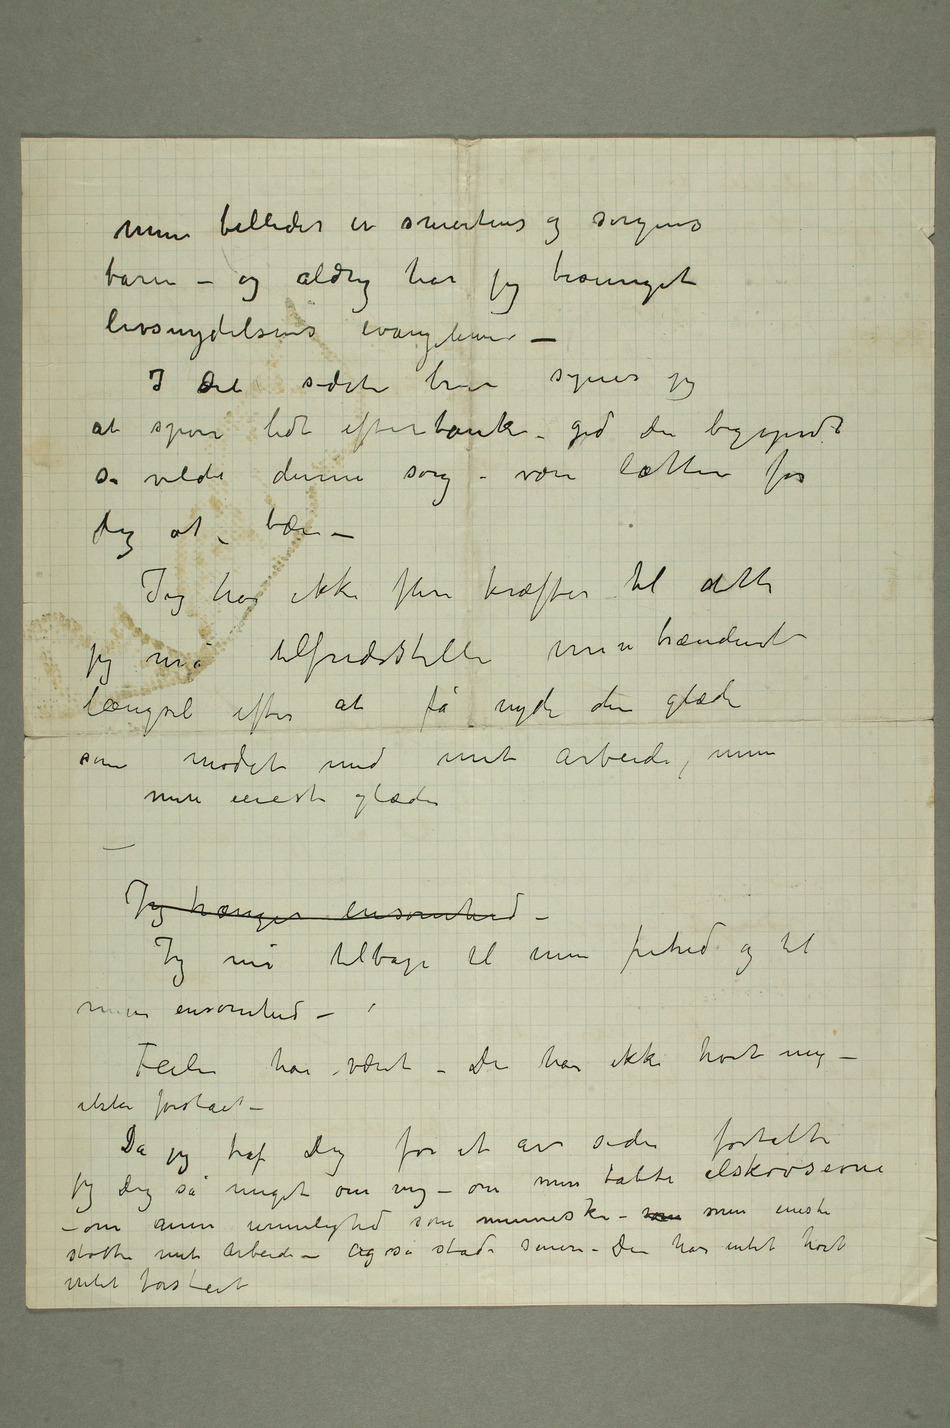 mine billeder er smertens og sorgens
barn – og aldrig har jeg besunget
livsnydelsens evangelium –
I det sidste brev synes jeg
at spore lidt eftertanke – gid du begyndte
så vilde denne sorg – være lættere for
dig at bære –
Jeg har ikke flere kræfter til dette
jeg må tilfredsstille min brændende
længsel efter at få nyde den glæde
som mødet med mit arbeide, min
min eneste glæde
–
Jeg trænger ensomhed –
Jeg må tilbage til min frihed og til
min ensomhed –
Feilen har været – Du har ikke hørt mig –
ikke forstået –
Da jeg traf Dig for et år siden fortalte
jeg dig så meget om mig – om min tabte elskovsevne
– om min umulighed som menneske – som min eneste
støtte mit arbeide – Og så stadi senere – Du har intet hørt
intet forstået